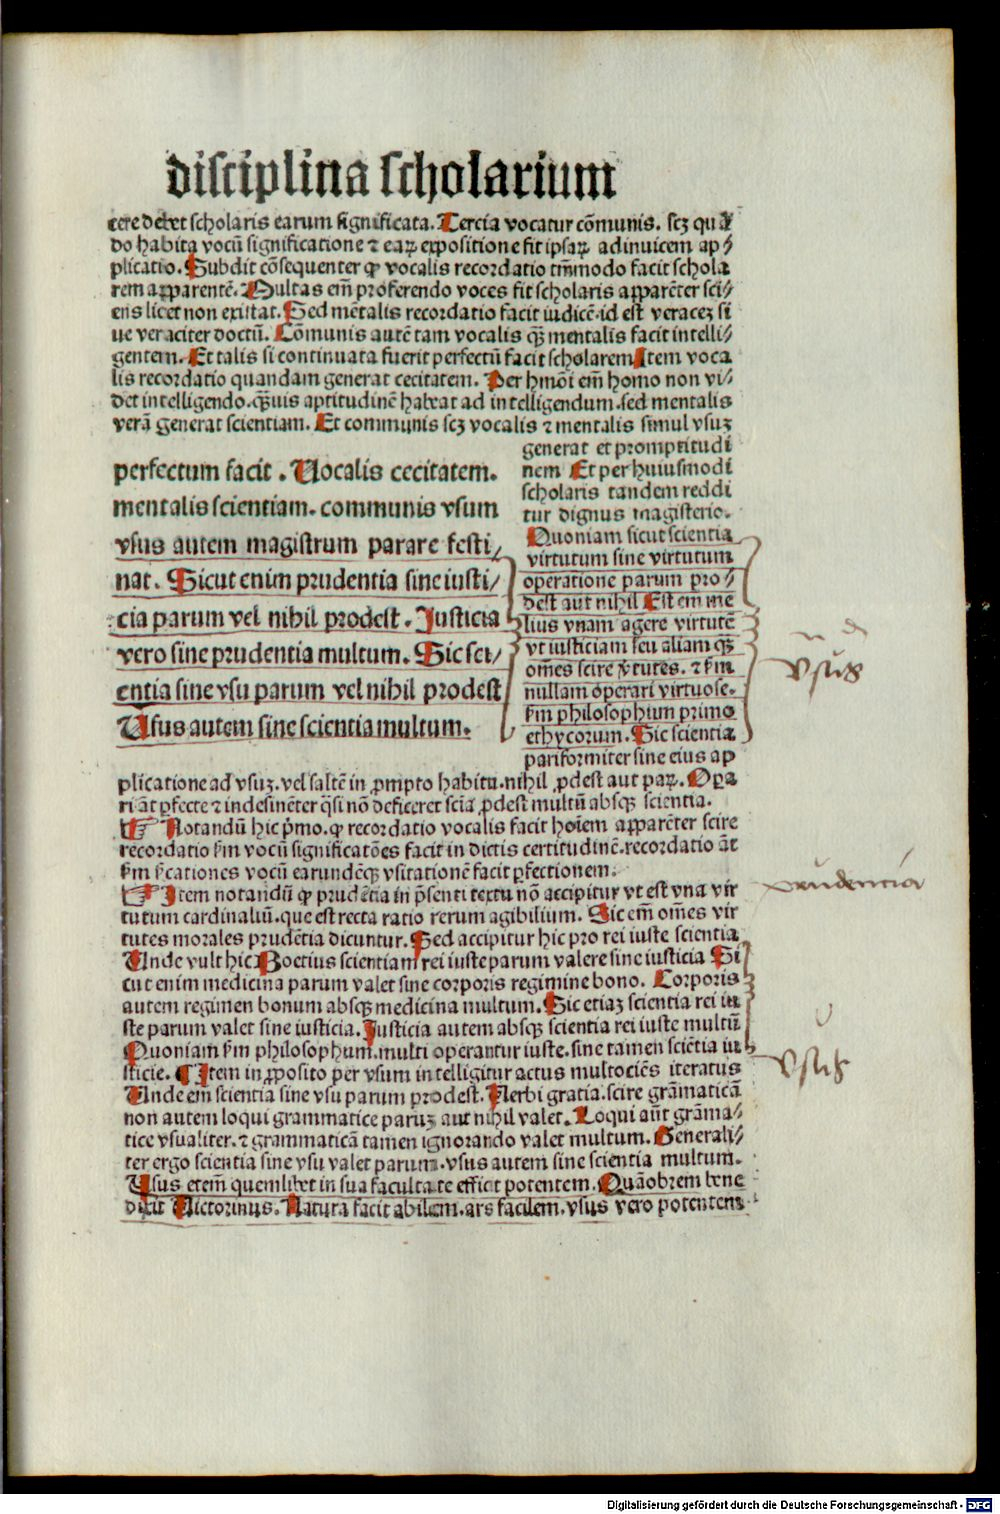 disciplina scholarium
cere debet scholaris earum significata. Tercia vocatur cōmunis. scꝫ quā
do habita vocū significatione ⁊ eaꝝ expositione fit ipsaꝝ adinuicem ap⸗
plicatio. Subdit cōsequenter ꝙ vocalis recordatio tm̄modo facit schola
rem apparentē. Multas em̄ proferendo voces fit scholaris apparēter sci⸗
ens licet non existat. Sed mētalis recordatio facit iudicē. id est veracez si
ue veraciter doctū. Cōmunis autē tam vocalis qꝫ̄ mentalis facit intelli⸗
gentem. Et talis si continuata fuerit perfectū facit scholarem Item voca
lis recordatio quandam generat cecitatem. Per hmōi em̄ homo non vi⸗
det intelligendo. qꝫ̄uis aptitudinē habeat ad intelligendum. sed mentalis
verā generat scientiam. Et communis scꝫ vocalis ⁊ mentalis simul vsuꝫ
generat et promptitudi
nem Et per huiusmodi
scholaris tandem reddi
tur dignus magisterio.
Quoniam sicut scientia
virtutum sine virtutum
operatione parum pro⸗
dest aut nihil Est em̄ me
lius vnam agere virtutē
vt iusticiam seu aliam qꝫ̄
om̄es scire v̓tutes. ⁊ ẜm
nullam operari virtuose.
ẜm philosophum primo
ethycorum. Sic scientia
pariformiter sine eius ap
perfectum facit . Uocalis cecitatem.
mentalis scientiam. communis vsum
vsus autem magistrum parare festi⸗
nat. Sicut enim prudentia sine iusti⸗
cia parum vel nihil prodest. Justicia
vero sine prudentia multum. Sic sci⸗
entia sine vsu parum vel nihil prodest
Usus autem sine scientia multum.
plicatione ad vsuꝫ. vel saltē in ꝓmpto habitu. nihil ꝓdest aut paꝝ. Opa
ri aūt ꝑfecte ⁊ indesinēter q̄si nō deficeret scīa ꝓdest multū absqꝫ scientia.
☞ Notandū hic p̄mo. ꝙ recordatio vocalis facit hoīem apparēter scire
recordatio ẜm vocū significatōes facit in dictis certitudinē. recordatio aūt
ẜm ẜcationes vocū earundēqꝫ vsitationē facit ꝑfectionem.
☞ Item notandū ꝙ prudētia in p̄senti textu nō accipitur vt est vna vir
tutum cardinaliū. que est recta ratio rerum agibilium. Sic em̄ om̄es vir
tutes morales prudētia dicuntur. Sed accipitur hic pro rei iuste scientia
Unde vult hic Boetius scientiam rei iuste parum valere sine iusticia Si
cut enim medicina parum valet sine corporis regimine bono. Corporis
autem regimen bonum absqꝫ medicina multum. Sic etiaꝫ scientia rei iu
ste parum valet sine iusticia. Justicia autem absqꝫ scientia rei iuste multū
Quoniam ẜm philosophum. multi operantur iuste. sine tamen sciētia iu
sticie. ¶ Item in ꝓposito per vsum intelligitur actus multociēs iteratus
Unde em̄ scientia sine vsu parum prodest. Uerbi gratia. scire grāmaticā
non autem loqui grammatice paruꝫ aut nihil valet. Loqui aūt grāma⸗
tice vsualiter. ⁊ grammaticā tamen ignorando valet multum. Generali⸗
ter ergo scientia sine vsu valet parum. vsus autem sine scientia multum.
Usus etem̄ quemlibet in sua facultate efficit potentem. Quāobrem bene
dixit Victorinus. Natura facit abilem. ars facilem. vsus vero potentem
vsus
prudencia
vsus
Digitalisierung gefördert durch die Deutsche Forschungsgemeinschaft - DFG